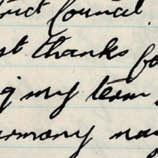 rict Council.
st thanks fo
g my term
armony na